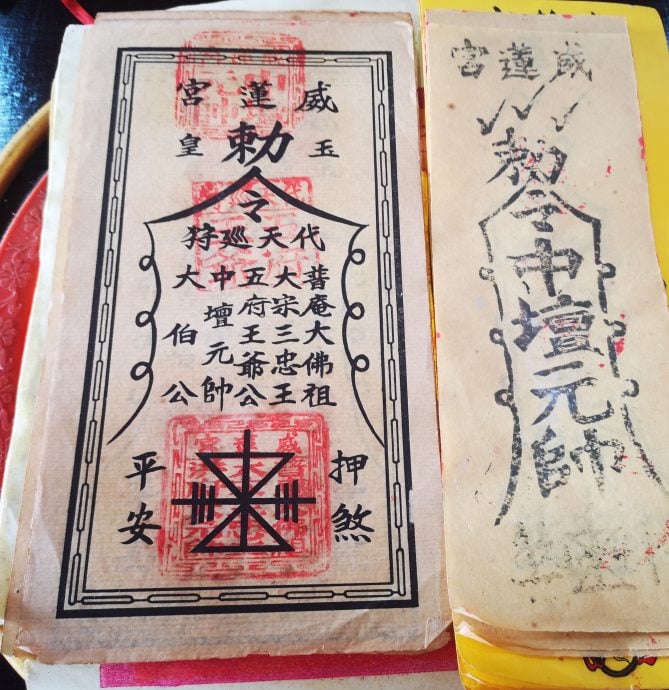 威蓮宮
玉皇
勅令
代天廵狩
普庵大佛祖
大宗三忠王
五府王爺公
中壇元帥
大伯公
押煞
平安
威蓮宮
勅令
中壇元帥